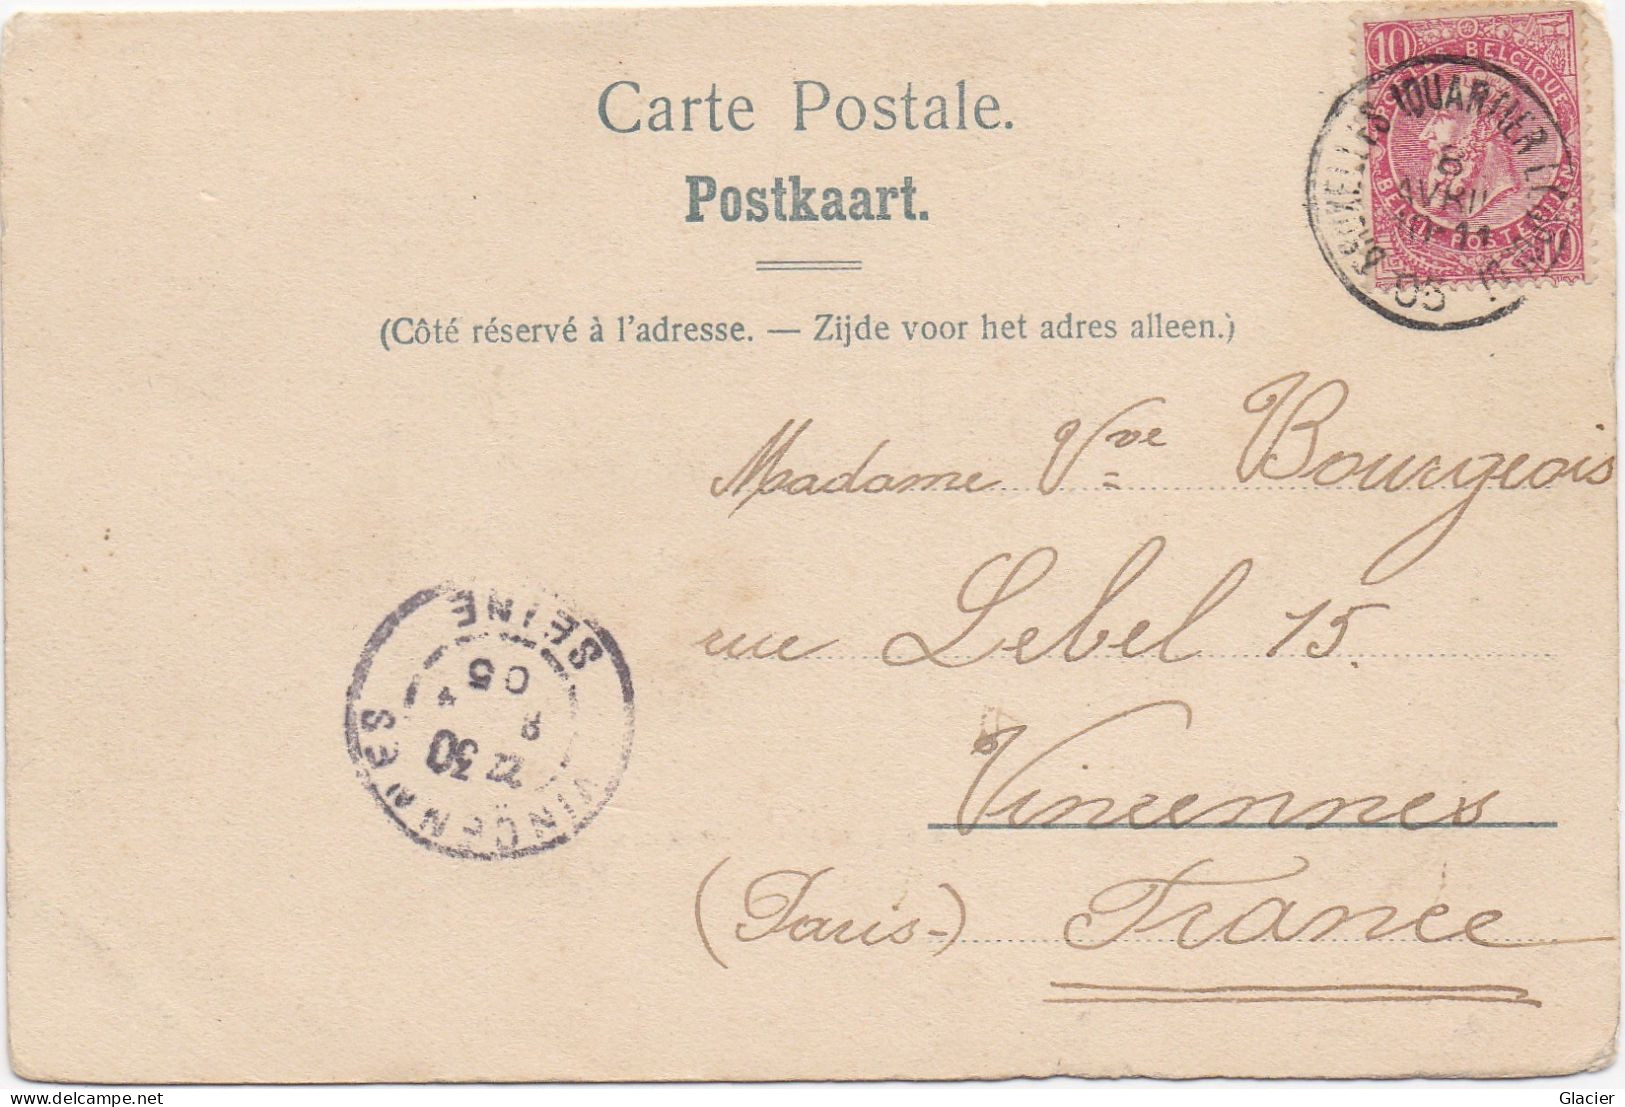 Carte Postale.
Postkaart.
(Côté réservé à l'adresse. — Zijde voor het adres alleen.)
10 BELGIQUE
BRUXELLES (QUARTIER LÉOPOLD)
8
AVRIL
10-11
05
10
Madame Vve Bourgeois
rue Lebel 15.
Vincennes
(Paris-) France
VINCENNES
30
8
05
SEINE
delcampe.net
Glacier